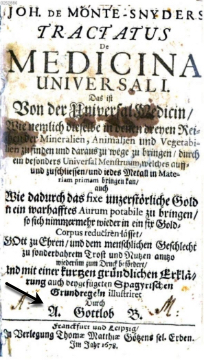 JOH. DE MONTE-SNYDERS
TRACTATUS
De
MEDICINA
UNIVERSALI,
Das ist
Von der Universal Medicin /
Wie nemlich dieselbe in denen dreyen Rei-
der Mineralien, Animalien und Vegetabi-
lien zufinden und daraus zu wege zu bringen / durch
ein besonders Universal Menstruum, welches auff-
und zuschliessen / und jedes Metall in Mate-
riam primam bringen kan /
auch
Wie dadurch das fixe unzerstörliche Gold
in ein warhafftes Aurum potabile zu bringen /
so sich nimmermehr wieder in ein fix Gold-
Corpus reduciren lässet /
GOtt zu Ehren / und dem menschlichen Geschlecht
zu sonderbahrem Trost und Nutzen anitzo
wiederum zum Druck befördert /
Und mit einer kurtzen gründlichen Erklä-
rung auch beygefügten Spagyrischen
Grundregeln illustriret
Durch
A. Gottlob B.
Franckfurt und Leipzig /
In Verlegung Thomæ Matthiæ Götzens sel. Erben.
Im Jahr 1678.